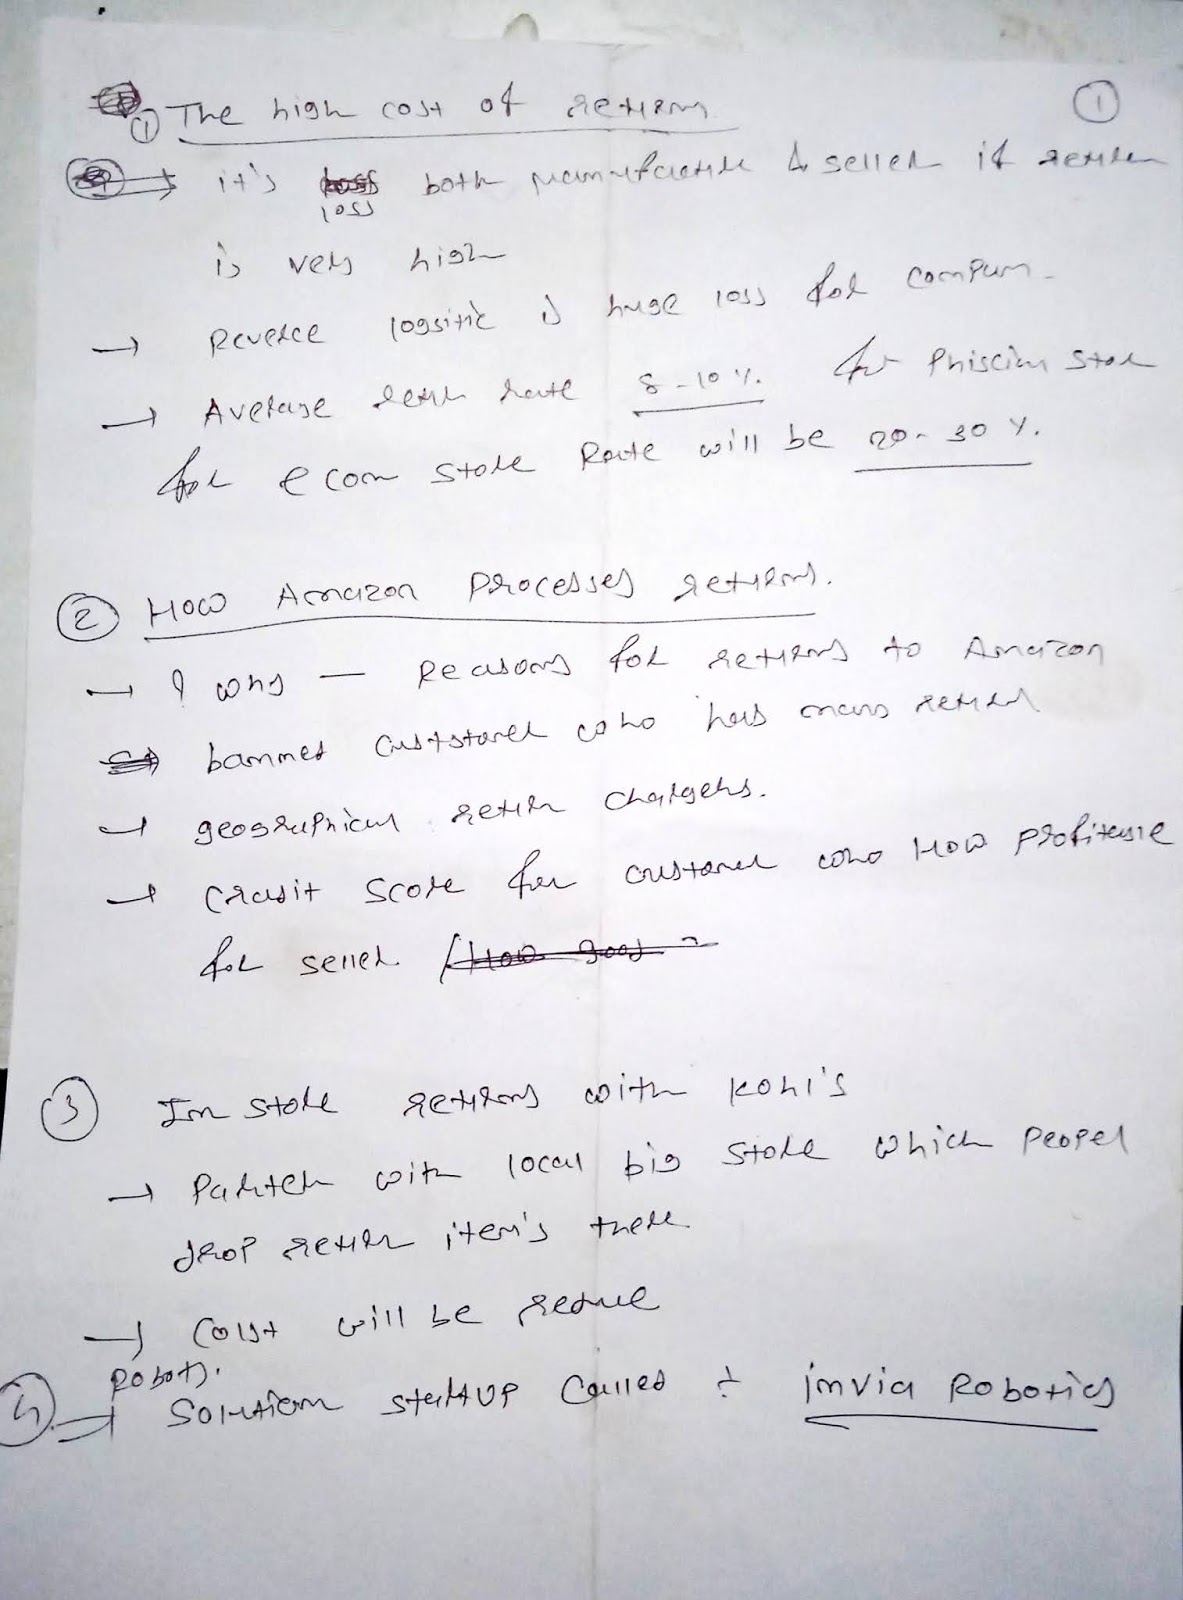 ① The high cost of returns ①
→ it's loss both manufacture & seller if return
is very high
→ Reverce logsitic is huge loss for
→ Average return rate 8-10%. for Store
for e com store Rate will be 20-30%.
② How Amazon Processes returns.
→ I why — Reasons for returns to Amazon
banned who has many return
→ geographical return chargers.
→ Credit Score for customer who How
for seller (How good
③ In store returns with Kohl's
→ Parter with local big store which Peopel
drop return item's there
→ Cost will be reduce
Robots.
④ → Solution startup Called ÷ invia Robotics